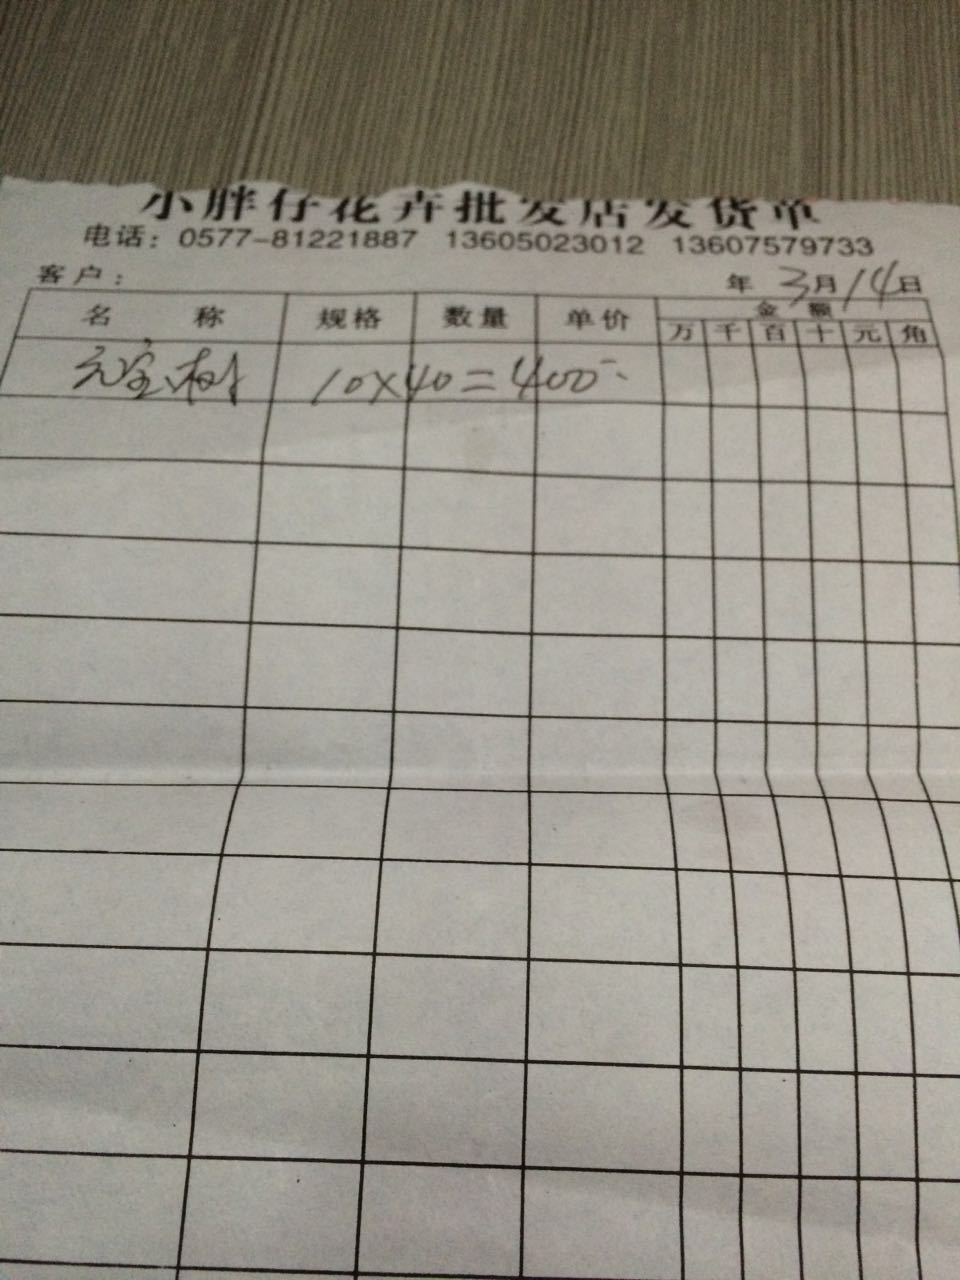 小胖仔花卉批发店发货单
电话：0577-81221887 13605023012 13607579733
客户： 年3月14日
名称 规格 数量 单价 金额
万 千 百 十 元 角
元宝树 10×40=400-